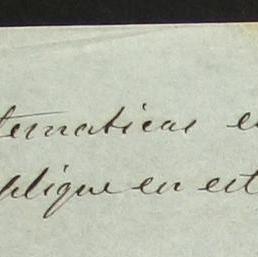 tematicas e
plique en est